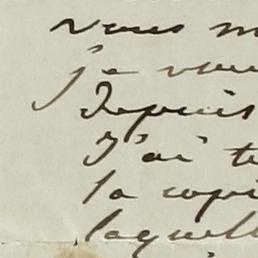 vous m
je vous
Depuis
J'ai t
la copi
laquell